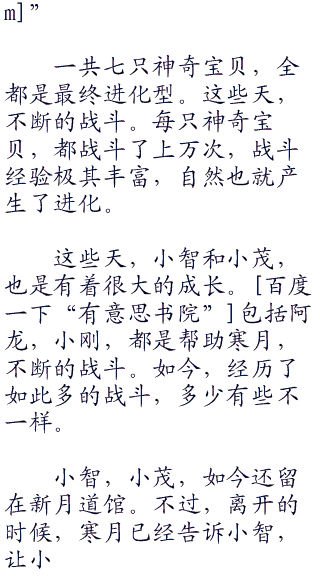 m]”
一共七只神奇宝贝，全
都是最终进化型。这些天，
不断的战斗。每只神奇宝
贝，都战斗了上万次，战斗
经验极其丰富，自然也就产
生了进化。
这些天，小智和小茂，
也是有着很大的成长。[百度
一下“有意思书院”]包括阿
龙，小刚，都是帮助寒月，
不断的战斗。如今，经历了
如此多的战斗，多少有些不
一样。
小智，小茂，如今还留
在新月道馆。不过，离开的
时候，寒月已经告诉小智，
让小